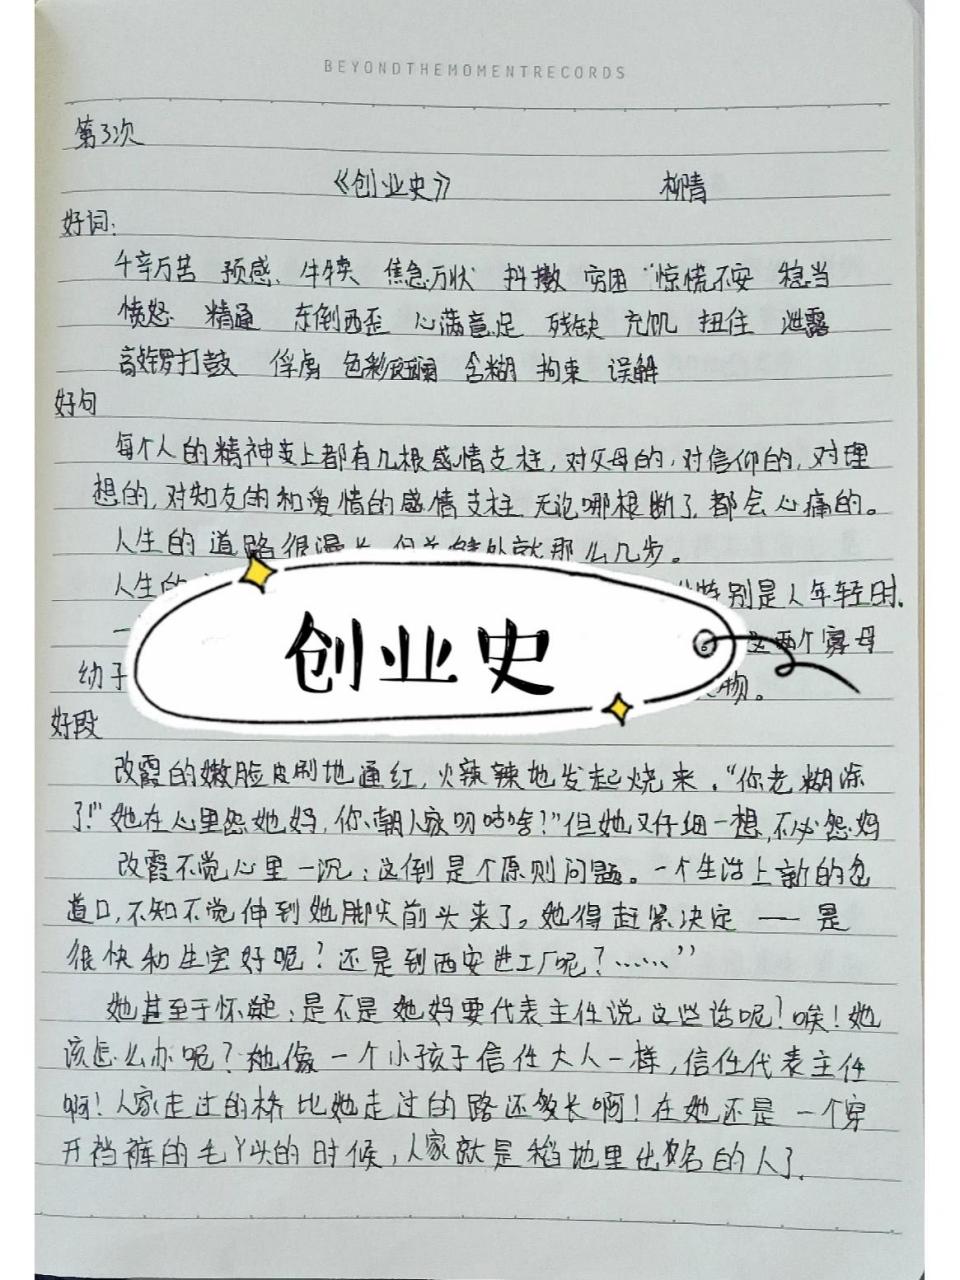 BEYONDTHEMOMENTRECORDS
第3次
《创业史》 柳青
好词:
千辛万苦 预感 牛犊 焦急万状 抖擞 穷困 惊慌不安 稳当
愤怒 精通 东倒西歪 心满意足 残缺 充饥 扭住 泄露
敲锣打鼓 俘虏 色彩斑斓 含糊 拘束 误解
好句
每个人的精神支上都有几根感情支柱,对父母的,对信仰的,对理
想的,对知友的和爱情的感情支柱 无论哪根断了,都会心痛的。
人生的道路很漫长,但关键处就那么几步。
人生的 特别是人年轻时.
创业史
一 这两个寡母
幼子 物。
好段
改霞的嫩脸皮刷地通红,火辣辣地发起烧来."你老糊涂
了!"她在心里怨她妈,你、朝人家叨咕啥!"但她又仔细一想,不必怨妈
改霞不觉心里一沉:这倒是个原则问题。一个生活上新的岔
道口,不知不觉伸到她脚尖前头来了。她得赶紧决定——是
很快和生宝好呢?还是到西安进工厂呢?……"
她甚至于怀疑:是不是她妈要代表主任说这些话呢?唉!她
该怎么办呢?她像一个小孩子信任大人一样,信任代表主任
啊!人家走过的桥比她走过的路还要长啊!在她还是一个穿
开裆裤的毛丫头的时候,人家就是稻地里出名的人了.